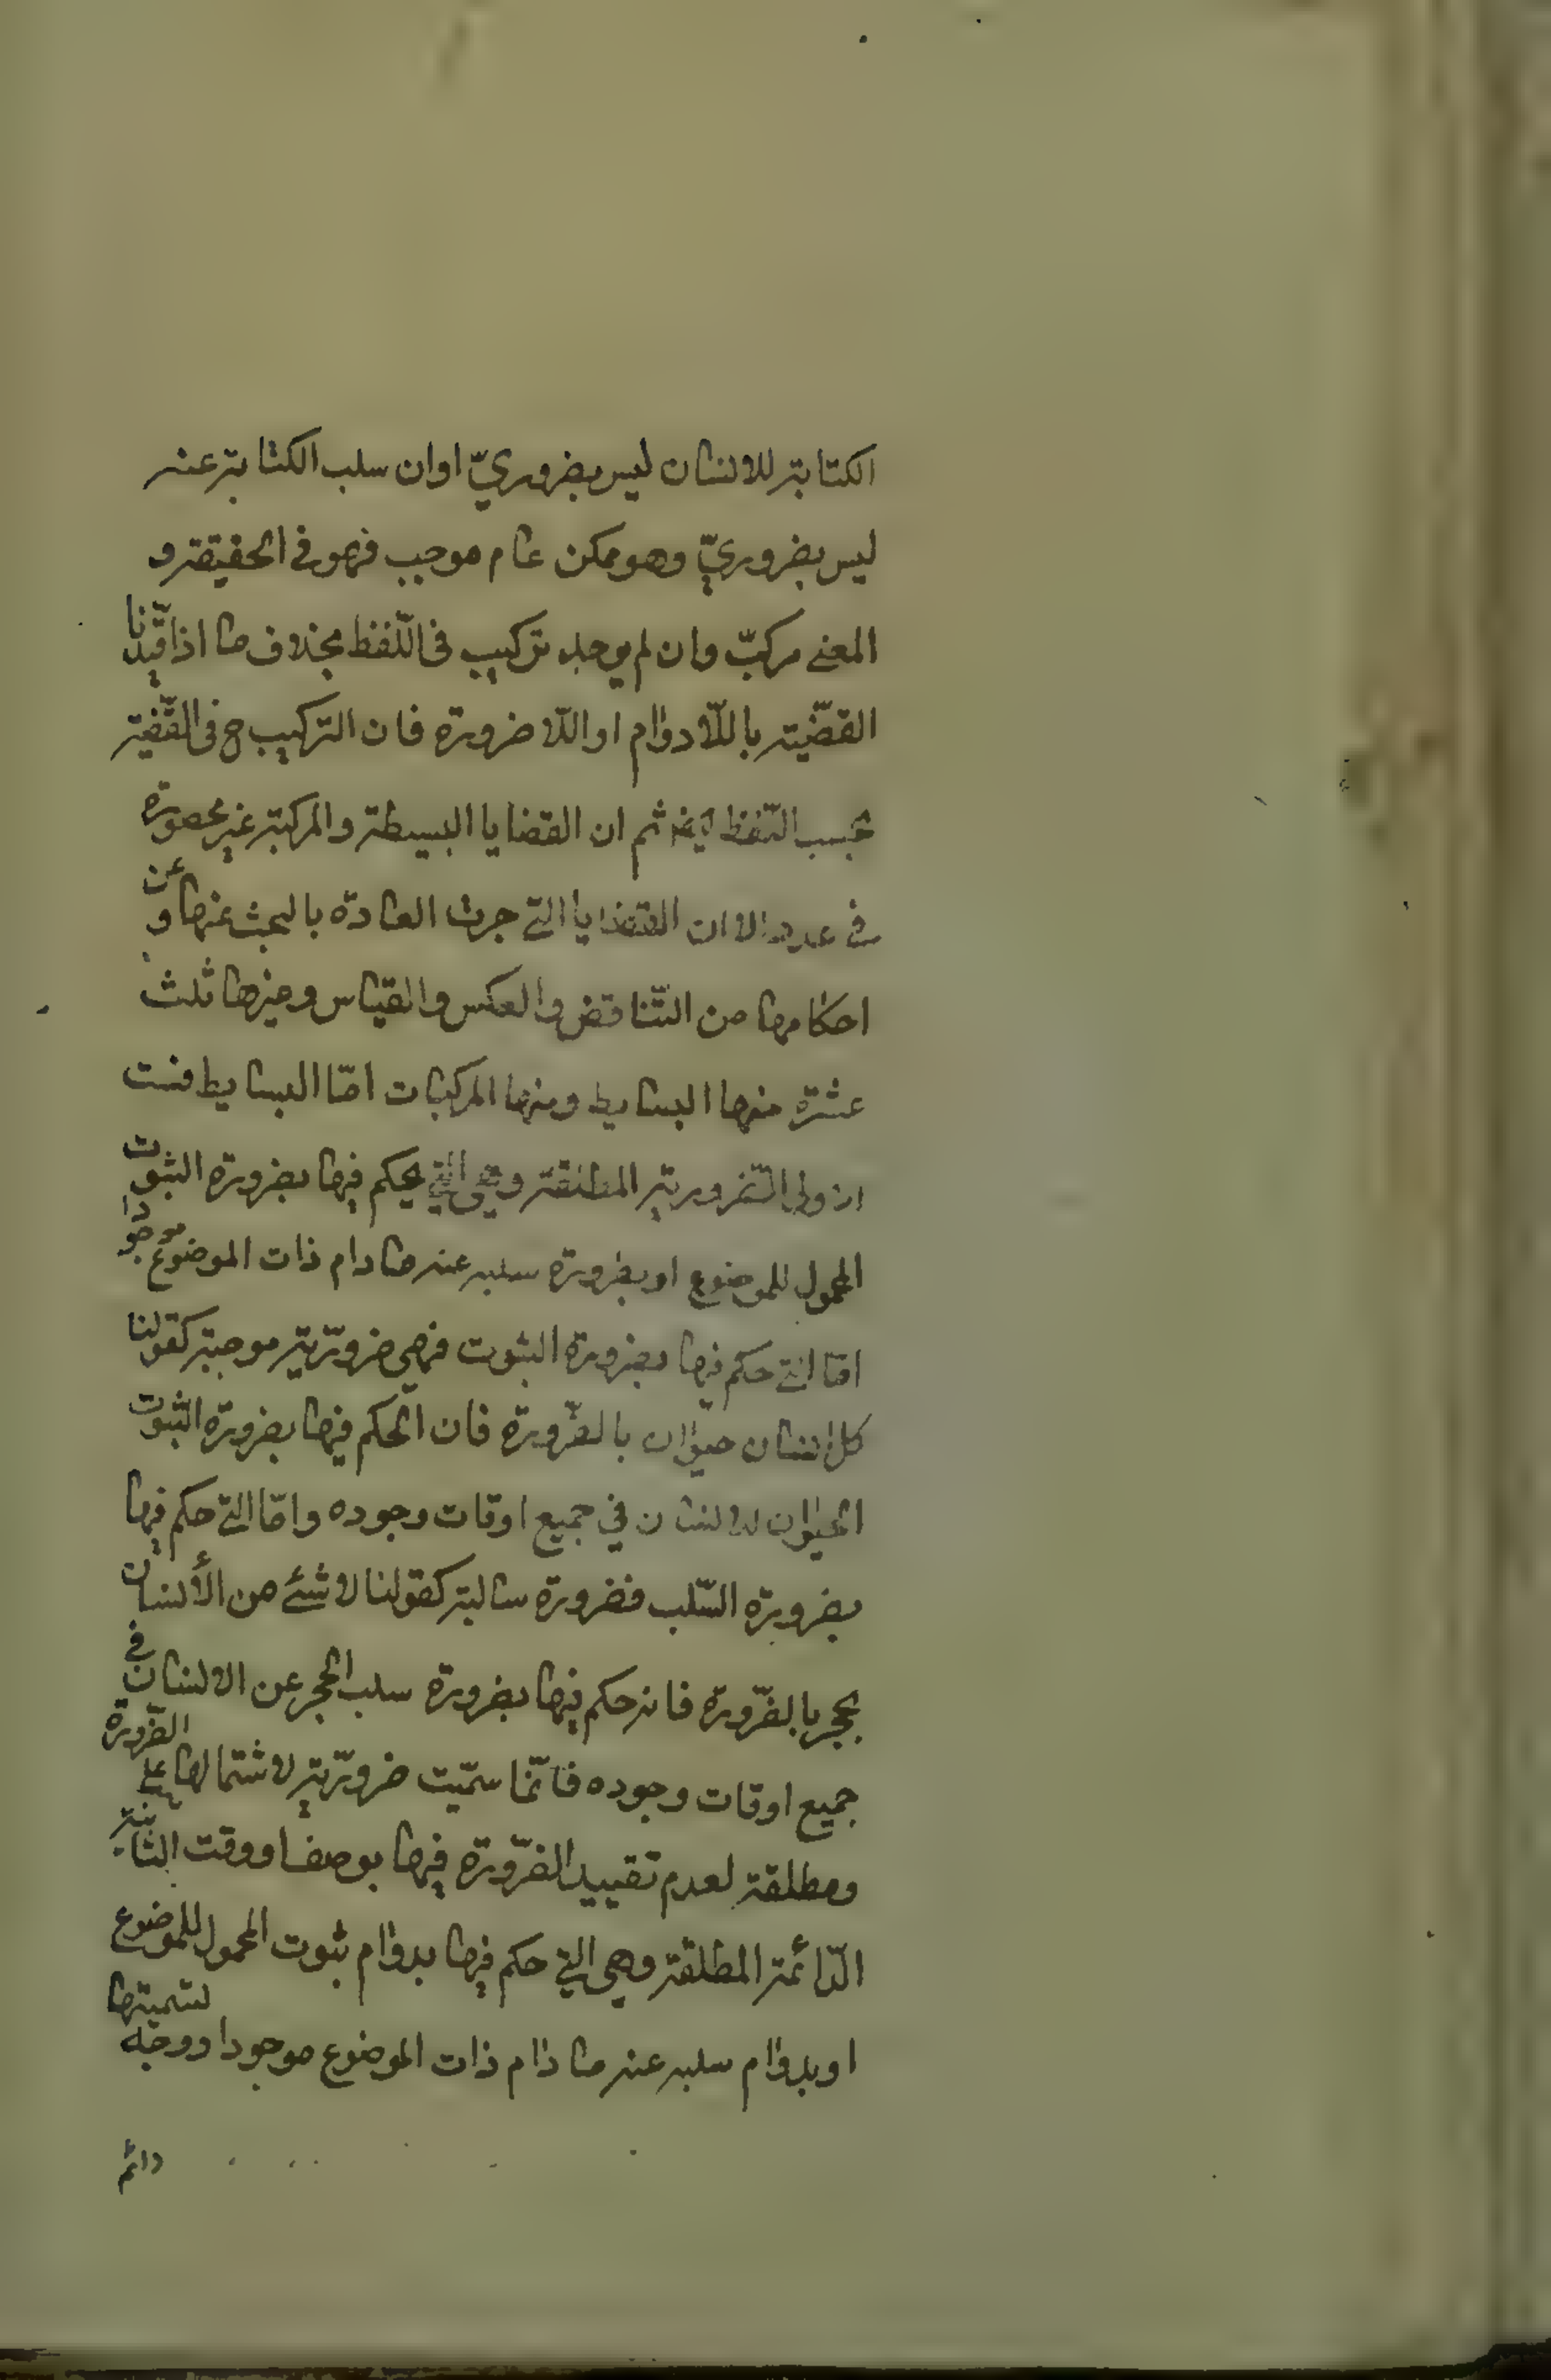 الكتابة للانسان ليس بضروريّ او ان سلب الكتابة عنه
ليس بضروريّ وهو ممكن عام موجب فهو في الحقيقة و
المعنى مركبّ وان لم يوجد تركيب في اللّفظ بخلاف ما اذا قيّدنا
القضّية باللّادوام او اللّا ضرورة فان التركيب ح في القضّية
بحسب اللّفظ ايضا ثم ان القضايا البسيطة والمركبة غير محصورة
في عدد الا ان القضايا التي جرت العادة بالبحث عنها و عن
احكامها من التّناقض والعكس والقياس وغيرها ثلث
عشرة منها البسايط ومنها المركبات امّا البسايط فست
الاولى الضّرورية المطلقة وهي التي يحكم فيها بضرورة الثبوت
المحمول للموضوع او بضرورة سلبه عنه ما دام ذات الموضوع موجودا
امّا التي حكم فيها بضرورة الثبوت فهي ضروريّة موجبة كقولنا
كل انسان حيوان بالضّرورة فان الحكم فيها بضرورة الثبوت
الحيوان للانسان في جميع اوقات وجوده وامّا التي حكم فيها
بضرورة السّلب فضرورة سالبة كقولنا لا شئ من الأنسان
بحجر بالضّرورة فانه حكم فيها بضرورة سلب الحجر عن الانسان في
جميع اوقات وجوده فانّما سمّيت ضروريّة لاشتمالها على الضّرورة
ومطلقة لعدم تقييد الضّرورة فيها بوصف او وقت الثّانية
الدّائمة المطلقة وهي التي حكم فيها بدوام ثبوت المحمول للموضوع
او بدوام سلبه عنه ما دام ذات الموضوع موجودا ووجه تسميتها
دائم